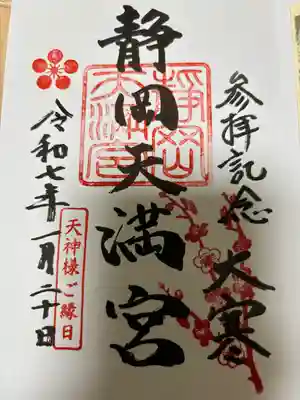 参拝記念
大寒
静岡天満宮
静岡
天満宮
令和七年一月二十日
天神様ご縁日